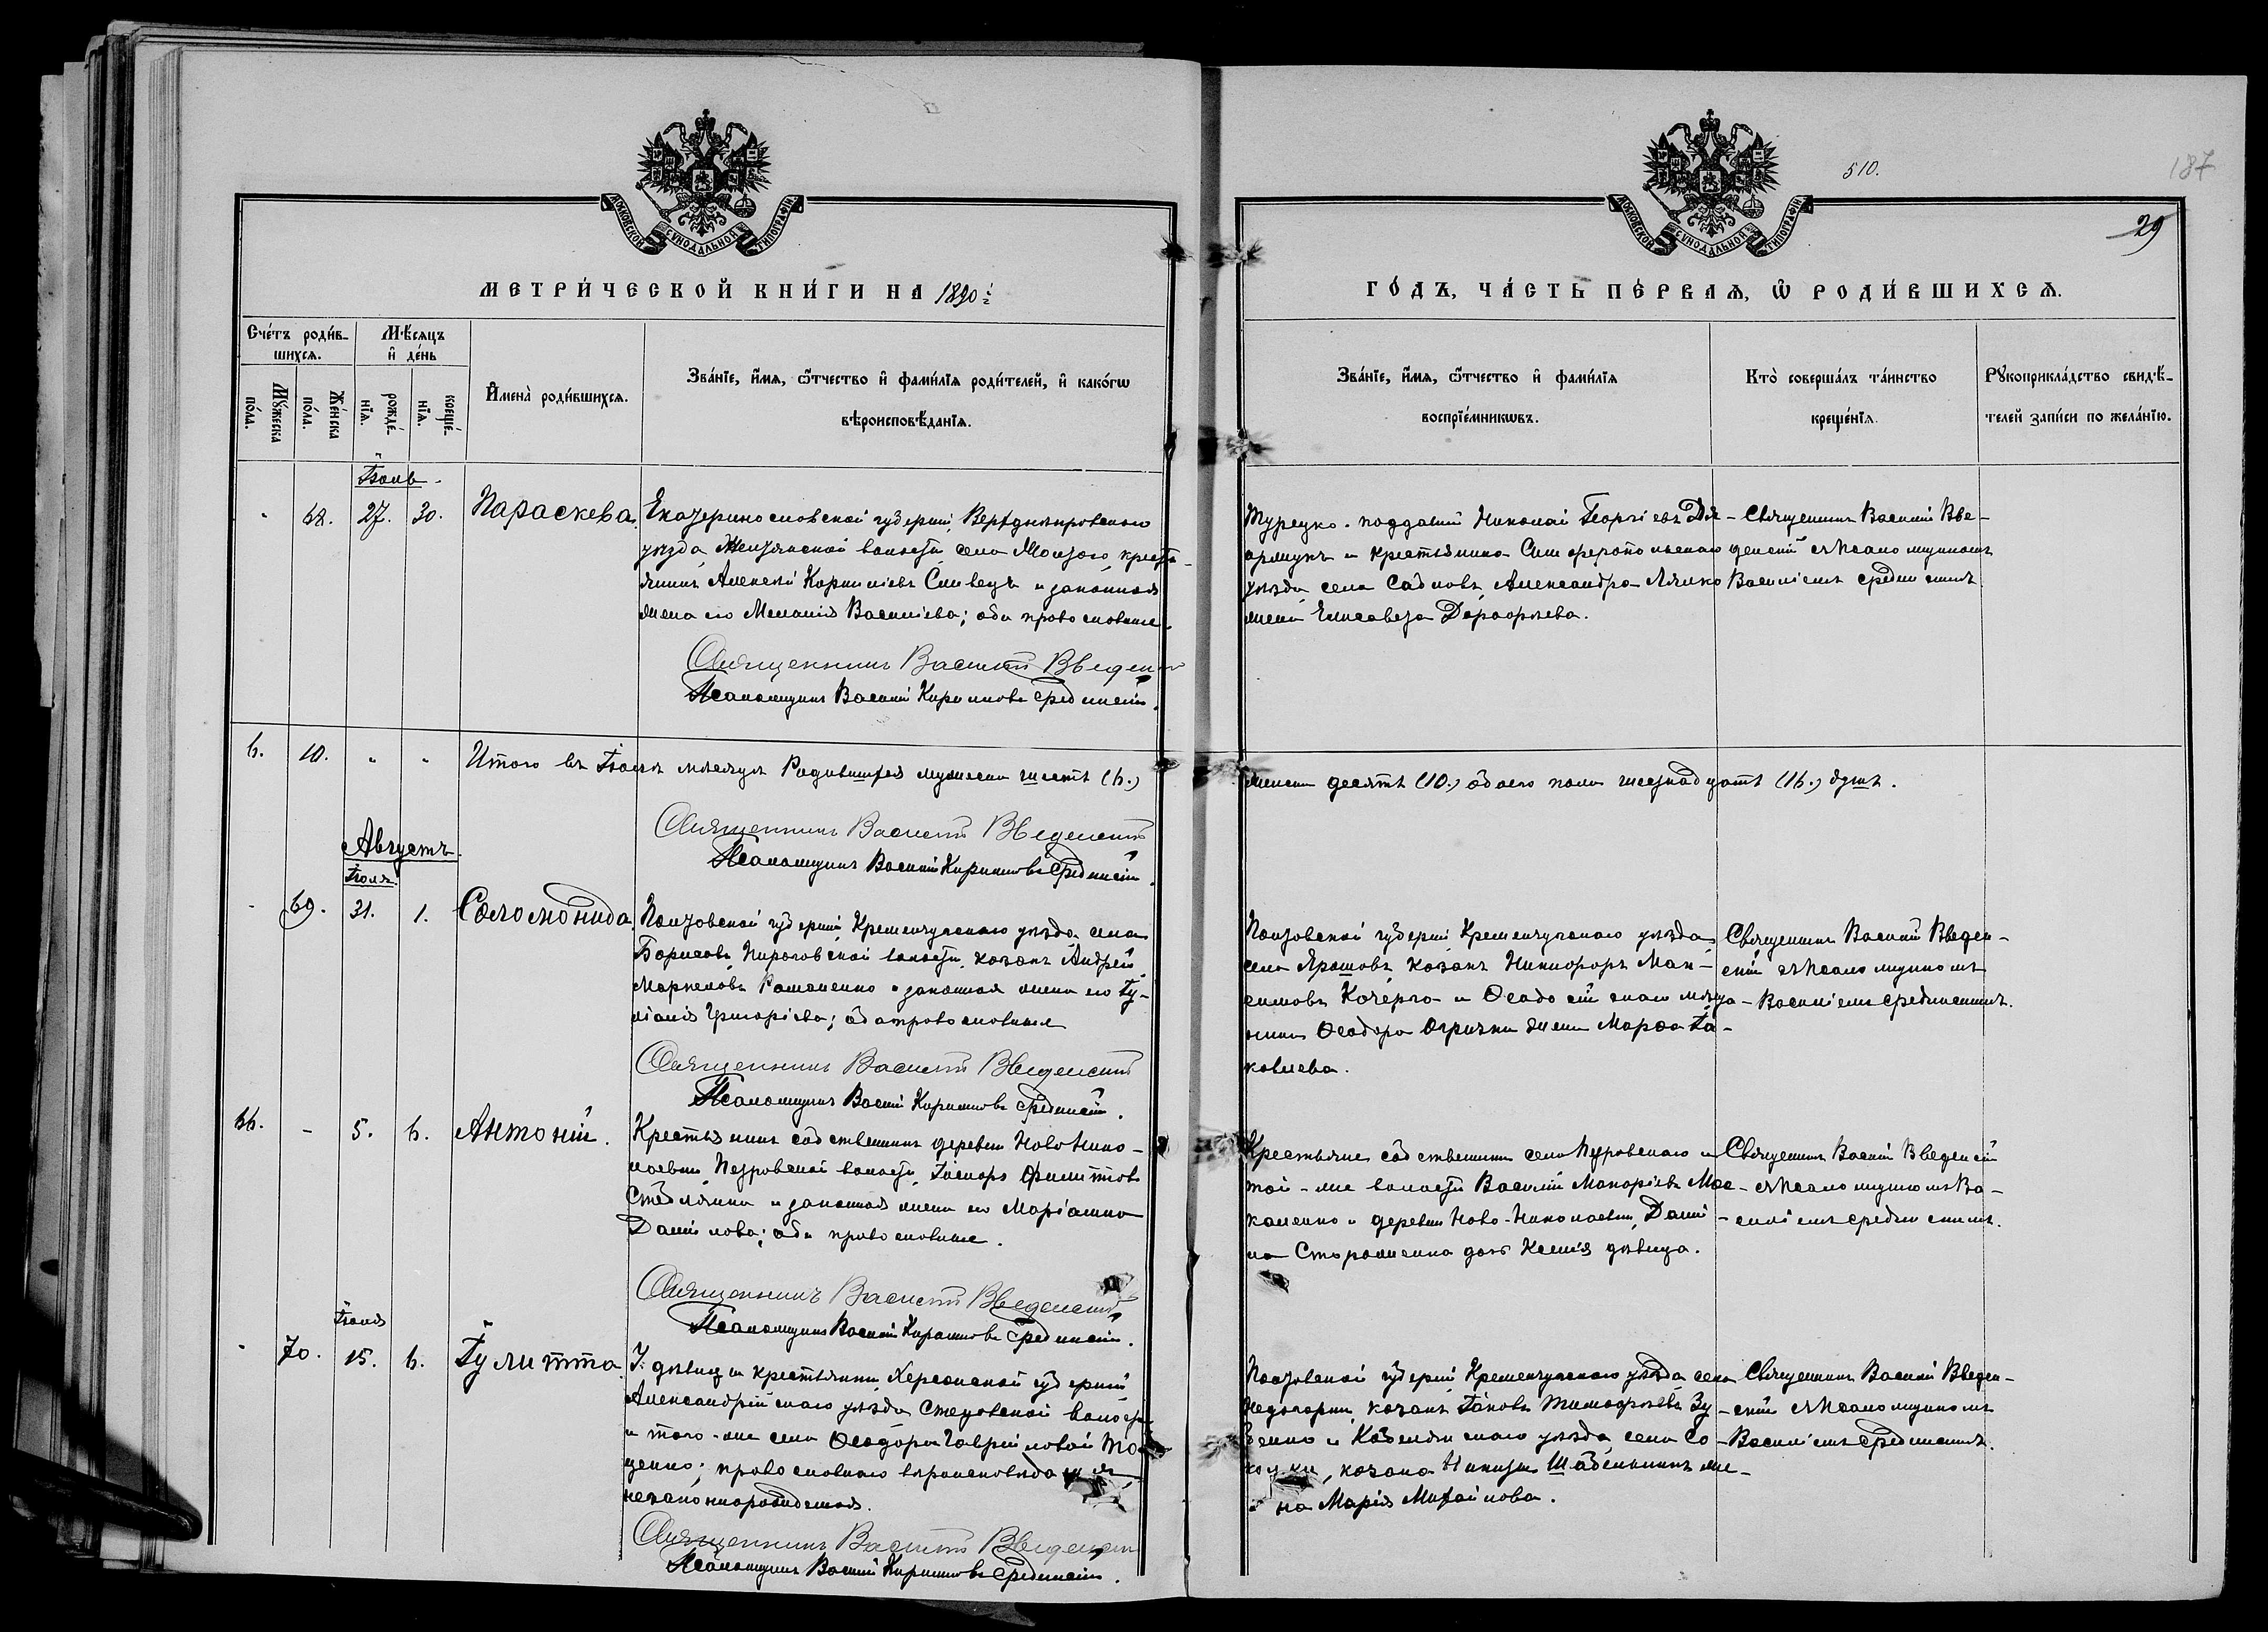 МОСКОВСКОЙ СѴНОДАЛЬНОЙ ТИПОГРАФІИ
МЕТРИ́ЧЕСКОЙ КНИ́ГИ НА 1890 г.
Сче́тъ роди́в-
шихсѧ.
Мѣ́сѧцъ
и҆ де́нь
Мꙋ́жеска
по́ла.
Же́нска
по́ла.
рожде́-
нїѧ.
креще́-
нїѧ.
И҆мена̀ роди́вшихсѧ.
Зва́нїе, и҆́мѧ, ѻ҆́тчество и҆ фами́лїѧ роди́телей, и҆ како́гѡ
вѣроисповѣ́данїѧ.
Іюль.
68. 27. 30. Параскева.
Екатеринославской губерніи, Верхднѣпровскаго
уѣзда, волости, села кресть-
янинъ Алексѣй Корниліевъ Сливецъ и законная
жена его Меланія Василіева; оба православные.
Священникъ Василій Введен
Псаломщикъ Василій Кирилловъ Срединскій.
6. 10. „ „ Итого въ Іюлѣ мѣсяцѣ Родившихся мужеска шесть (6.)
Священникъ Василій Введенскій
Псаломщикъ Василій Кирилловъ Срединскій.
Августъ.
Іюля.
- 69. 31. 1. Соломонида.
Полтовской губерніи, Кременчугскаго уѣзда, села
Борисовъ, Пироговской волости, козакъ Андрей
Маркеловъ Романенко и законная жена его Іу-
ліанія Григоріева; оба православные
Священникъ Василій Введенскій
Псаломщикъ Василій Кирилловъ Срединскій.
66. - 5. 6. Антоній.
Крестьянинъ собственникъ деревни Ново Нико-
лаевки, Петровской волости, Филипповъ
и законная жена его Маріанна
Даніилова; оба православные.
Священникъ Василій Введенскій
Псаломщикъ Василій Кирилловъ Срединскій.
Іюля
- 70. 15. 6. Іулитта.
У дѣвицы крестьянки Херсонской губерніи
Александрійскаго уѣзда волости
и того-же села Ѳеодоры Гавриловой
ценко; православнаго вѣроисповѣданія,
незаконнорожденная.
Священникъ Василій Введенскій
Псаломщикъ Василій Кирилловъ Срединскій.
МОСКОВСКОЙ СѴНОДАЛЬНОЙ ТИПОГРАФІИ
510.
187
29
ГО́ДЪ, ЧА́СТЬ ПЕ́РВАѦ, Ѡ҆ РОДИ́ВШИХСѦ.
Зва́нїе, и҆́мѧ, ѻ҆́тчество и҆ фами́лїѧ
воспрїе́мникѡвъ.
Кто̀ соверша́лъ та́инство
креще́нїѧ.
Рꙋкоприкла́дство свидѣ́-
телей за́писи по жела́нїю.
Турецко-подданый Николай Георгіевъ Дія-
армукъ и крестьянина Симферопольскаго
уѣзда, села Сабловъ, Александра Лялко
жена Елисавета Дороѳѣева.
Священникъ Василій Вве-
денскій съ Псаломщикомъ
Василіемъ Срединскимъ
женска десять (10.) обоего пола шестнадцать (16.) душъ.
Полтовской губерніи Кременчугскаго уѣзда,
села Ярошовъ, козакъ Никифоръ Мак-
симовъ Кочерга и Ѳеодосійскаго мѣща-
нина Ѳеодора Огрызки жена Марѳа Іа-
ковлева.
Священникъ Василій Введен-
скій съ Псаломщикомъ
Василіемъ Срединскимъ.
Крестьяне собственники села Петровскаго и
той-же волости Василій Макаріевъ Мос-
каленко и деревни Ново-Николаевки, Дании-
ла дочь Ксенія дѣвица.
Священникъ Василій Введенскій
съ Псаломщикомъ Ва-
силіемъ Срединскимъ.
Полтовской губерніи Кременчугскаго уѣзда, села
Недогарки, козакъ Іаковъ Тимоѳѣевъ Зу-
бенко и Кобелякскаго уѣзда, села Со-
колки, козака Никиты же-
на Марія Михайлова.
Священникъ Василій Введен-
скій съ Псаломщикомъ
Василіемъ Срединскимъ.